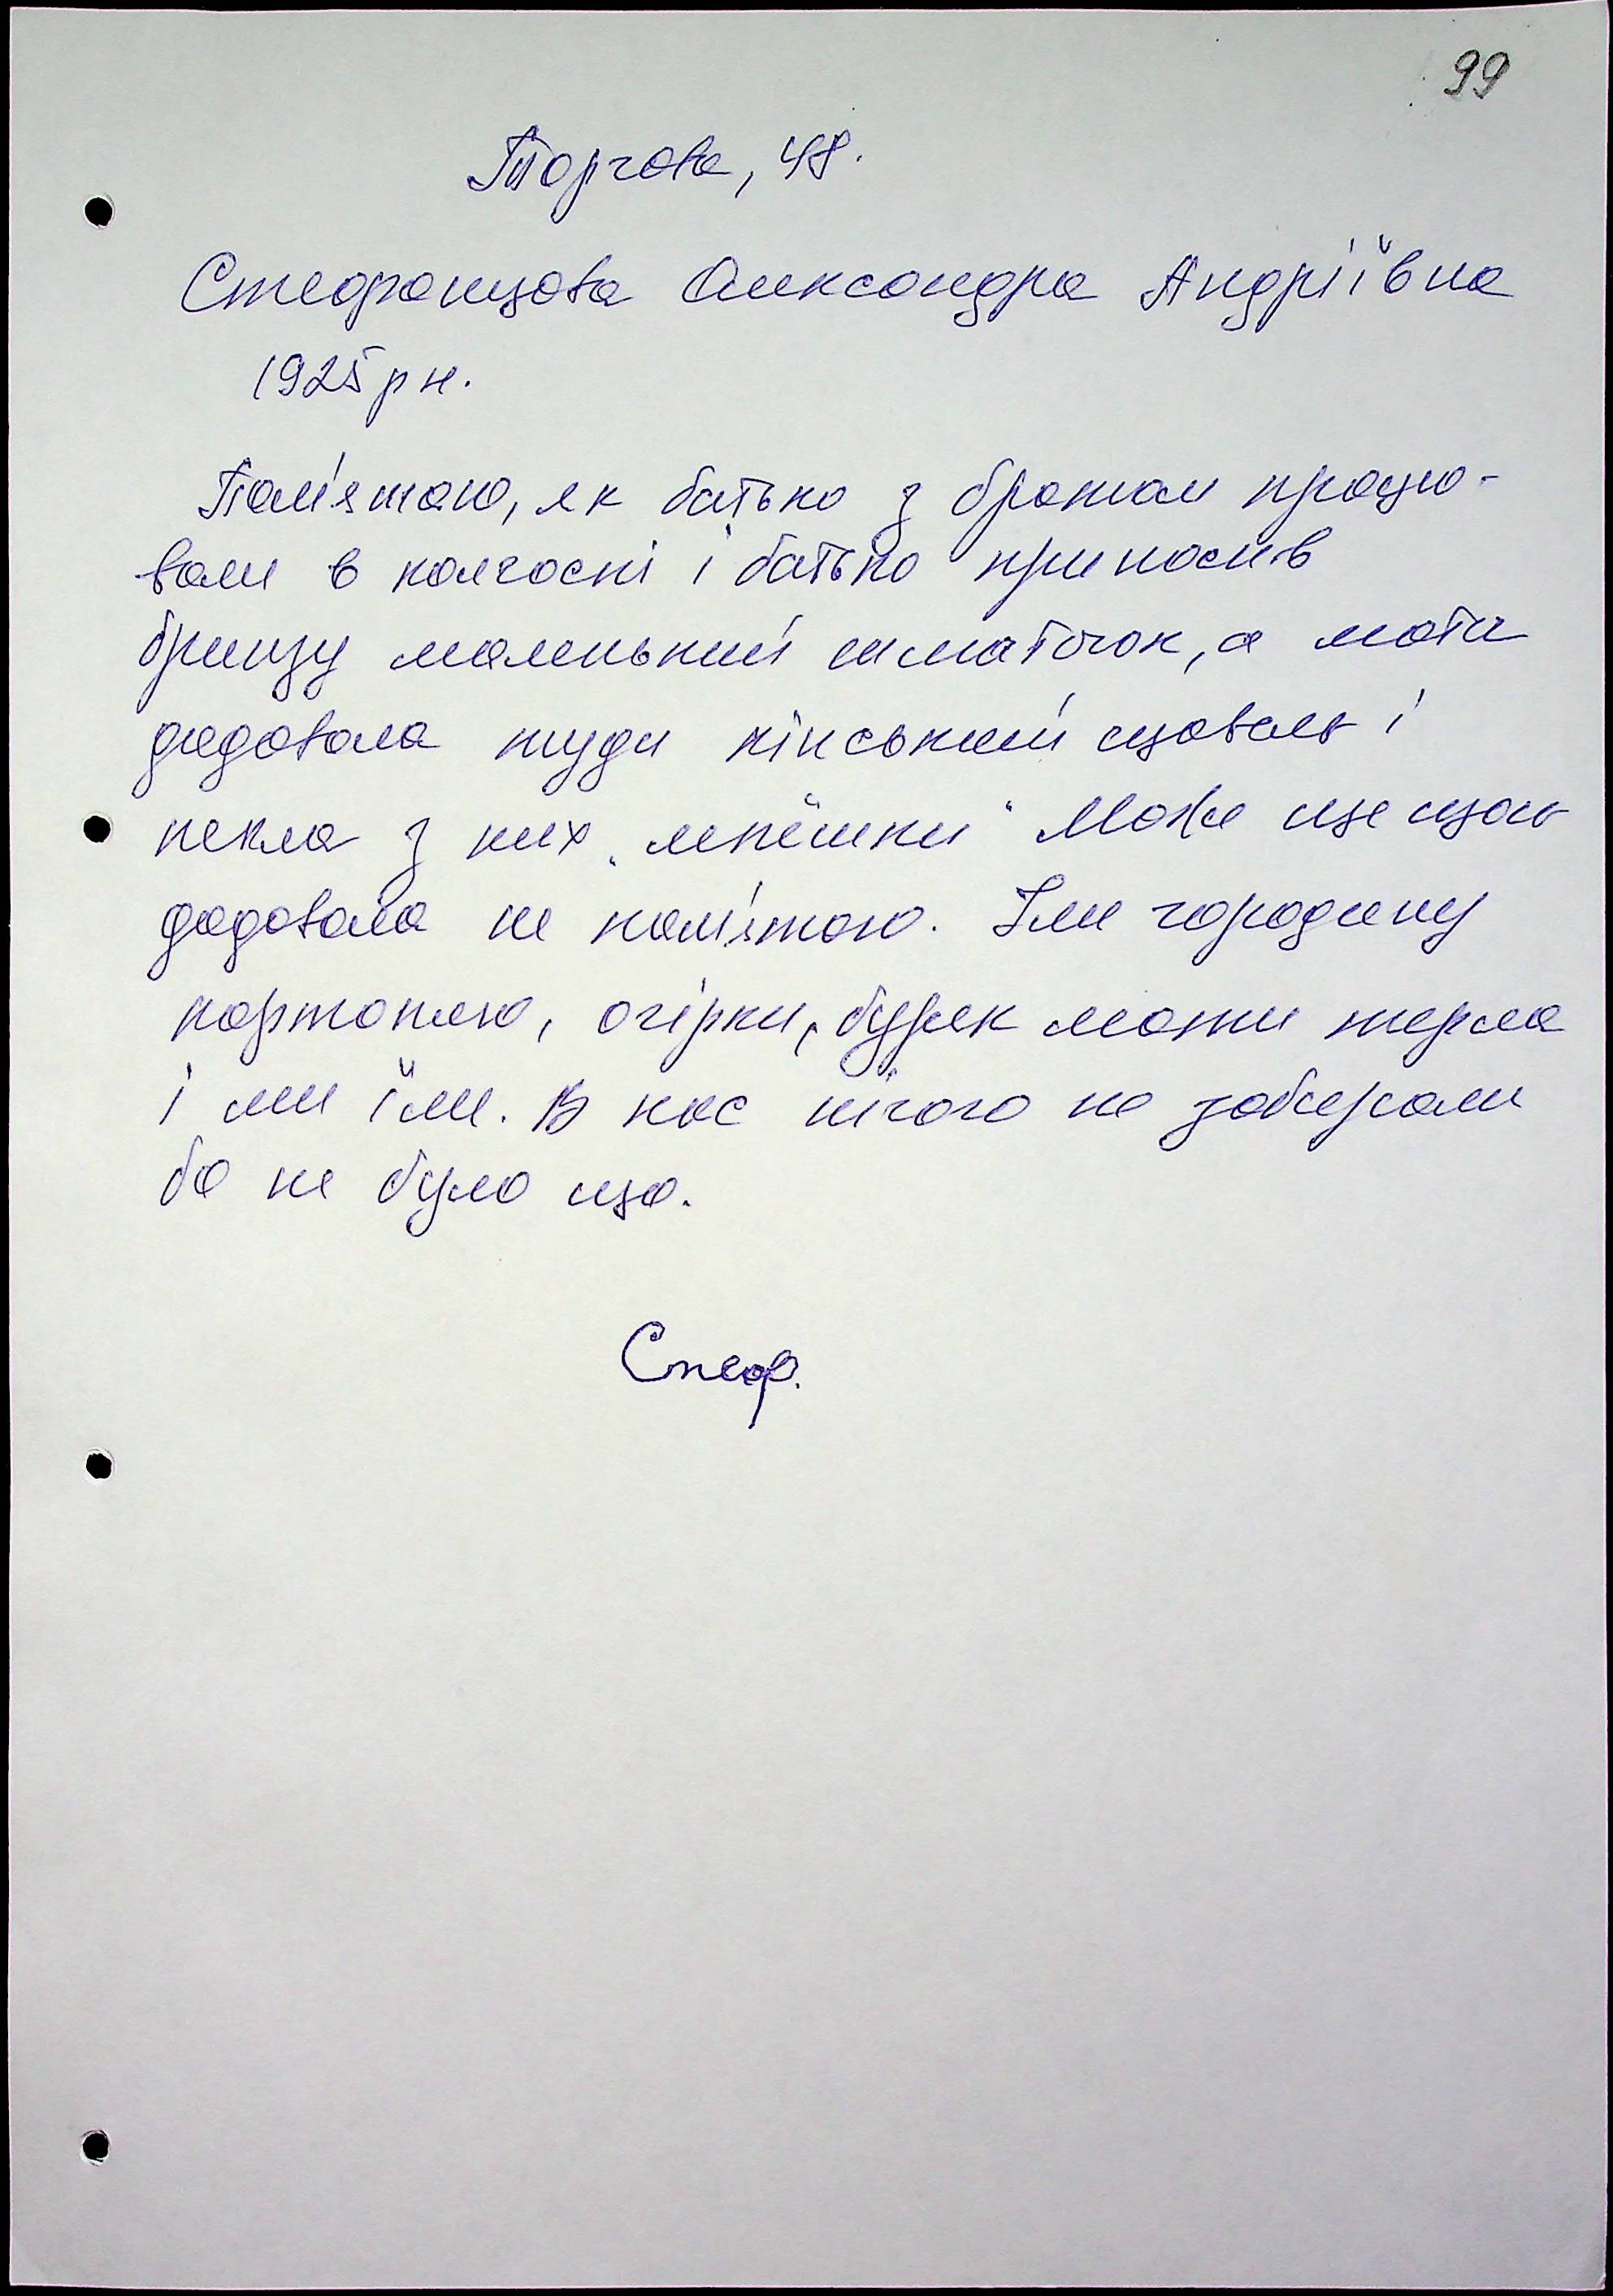 99
Торгова, 48.
Стефанцова Олександра Андріївна
1925 р н.
Пам'ятаю, як батько з братом працю-
вали в колгоспі і батько приносив
бринзу маленький шматочок, а мати
додавала туди кінський щавель і
пекла з них "лепёшки" Може ще щось
додавала не пам'ятаю. Їли городину
картоплю, огірки, буряк мати терла
і ми їли. В нас нічого не забирали
бо не було що.
Стеф.